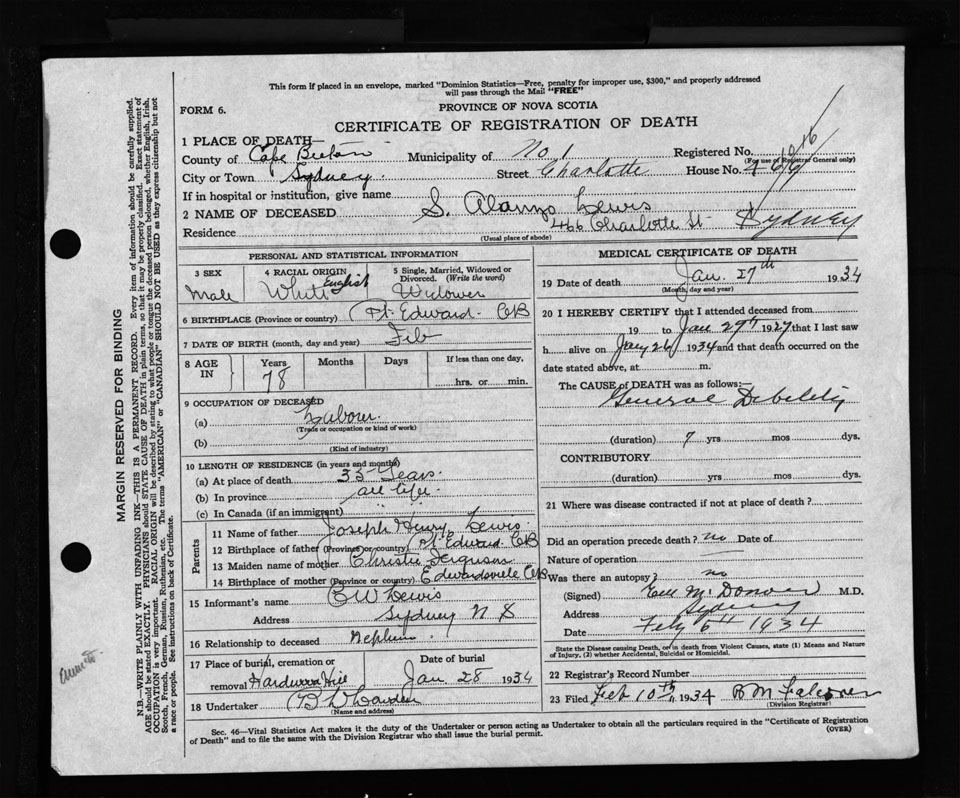 This form if placed in an envelope, marked "Dominion Statistics—Free, penalty for improper use, $300," and properly addressed
will pass through the Mail "FREE"
FORM 6.
PROVINCE OF NOVA SCOTIA
CERTIFICATE OF REGISTRATION OF DEATH
1 PLACE OF DEATH—
County of Cape Breton Municipality of No 1 Registered No.
(For use of Registrar General only)
City or Town Sydney Street Charlotte House No. 466
If in hospital or institution, give name
2 NAME OF DECEASED S. Alonzo Lewis
Residence 466 Charlotte St Sydney
(Usual place of abode)
PERSONAL AND STATISTICAL INFORMATION
3 SEX 4 RACIAL ORIGIN 5 Single, Married, Widowed or
Divorced. (Write the word)
Male White English Widower
6 BIRTHPLACE (Province or county) Pt. Edward CB
7 DATE OF BIRTH (month, day and year) Feb
8 AGE IN Years Months Days If less than one day,
78 hrs. or min.
9 OCCUPATION OF DECEASED
(a) Labour
(Trade or occupation or kind of work)
(b)
(Kind of industry)
10 LENGTH OF RESIDENCE (in years and months)
(a) At place of death 35 Years
(b) In province all life
(c) In Canada (if an immigrant)
Parents
11 Name of father Joseph Henry Lewis
12 Birthplace of father (Province or country) Pt Edward CB
13 Maiden name of mother Christie Ferguson
14 Birthplace of mother (Province or country) Edwardsville CB
15 Informant's name B W Lewis
Address Sydney N S
16 Relationship to deceased Nephew
17 Place of burial, cremation or Date of burial
removal Hardwood Hill Jan 28 1934
18 Undertaker
(Name and address)
MEDICAL CERTIFICATE OF DEATH
19 Date of death Jan. 27th 1934
(Month, day and year)
20 I HEREBY CERTIFY that I attended deceased from
19 to Jan 27th 1927 that I last saw
h alive on Jany 26 1934 and that death occurred on the
date stated above, at m.
The CAUSE of DEATH was as follows:—
General Debility
(duration) 7 yrs mos dys.
CONTRIBUTORY
(duration) yrs. mos. dys.
21 Where was disease contracted if not at place of death?
Did an operation precede death? no Date of
Nature of operation
Was there an autopsy? no
(Signed) M.D.
Address Sydney
Date Feby 6th 1934
State the Disease causing Death, or in death from Violent Causes, state (1) Means and
Nature of Injury, (2) whether Accidental, Suicidal or Homicidal.
22 Registrar's Record Number
23 Filed Feb 10th 1934
(Division Registrar)
Sec. 46—Vital Statistics Act makes it the duty of the Undertaker or person acting as Undertaker to obtain all the particulars required in the "Certificate of Registration
of Death" and to file the same with the Division Registrar who shall issue the burial permit. (OVER)
MARGIN RESERVED FOR BINDING
N.B.—WRITE PLAINLY WITH UNFADING INK—THIS IS A PERMANENT RECORD. Every item of information should be carefully supplied.
AGE should be stated EXACTLY. PHYSICIANS should STATE CAUSE OF DEATH in plain terms, so that it may be properly classified. Exact statement of
OCCUPATION is very important. RACIAL ORIGIN will be described by stating to what people or tongue the deceased person belonged, whether English, Irish,
Scotch, French, German, Russian, Ruthenian, etc. The terms "AMERICAN" or "CANADIAN" SHOULD NOT BE USED as they express citizenship but not
a race or people. See instructions on back of Certificate.